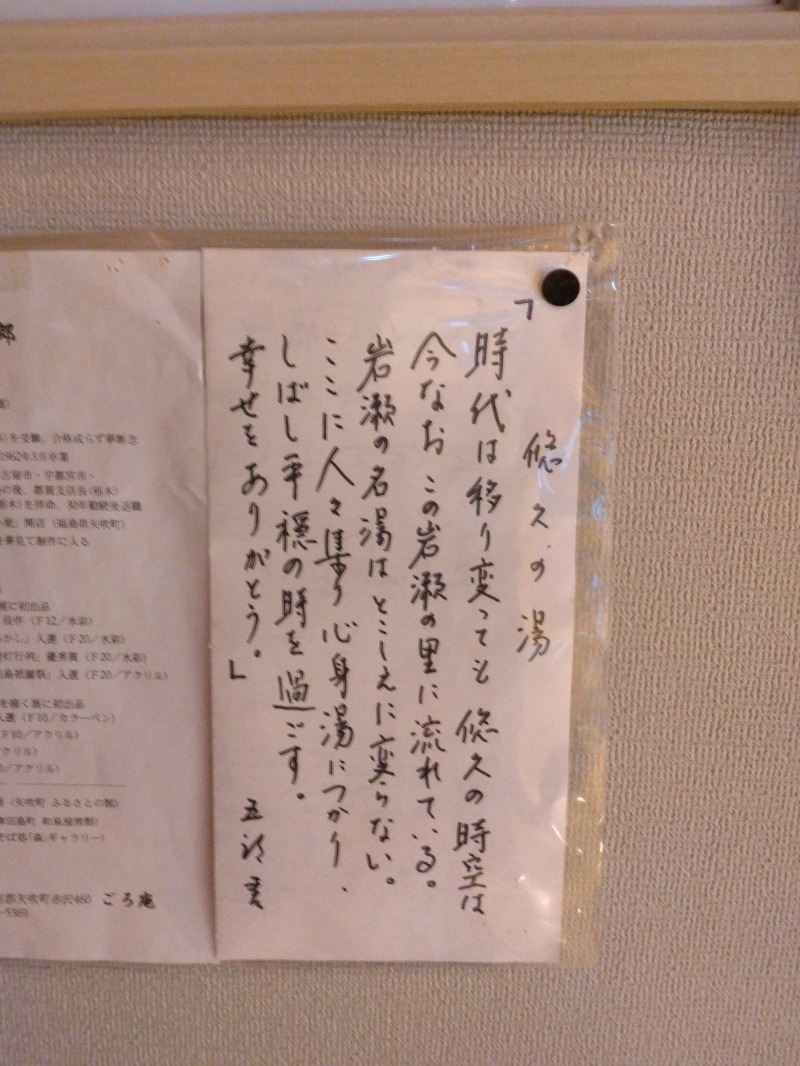 悠久の湯
「時代は移り変っても悠久の時空は
今なおこの岩瀬の里に流れている。
岩瀬の名湯はとこしえに変らない。
ここに人々集り心身湯につかり、
しばし平穏の時を過ごす。
幸せをありがとう。」
郎
を受験、合格成らず夢断念
1962年3月卒業
古屋市・宇都宮市・
の後、都賀支店長(栃木)
栃木)を拝命、30年勤続後退職
開店(福島県矢吹町)
を夢見て創作に入る
展に初出品
佳作(F12/水彩)
かし」入選(F20/水彩)
灯行列」優秀賞(F20/水彩)
島祇園祭」入選(F20/アクリル)
を描く展に初出品
入選(F10/カラーペン)
(F10/アクリル)
クリル)
0/アクリル)
(矢吹町 ふるさとの館)
田島町 和泉屋旅館)
そば処「森」ギャラリー)
郡矢吹町赤沢460 ごろ庵
-5369